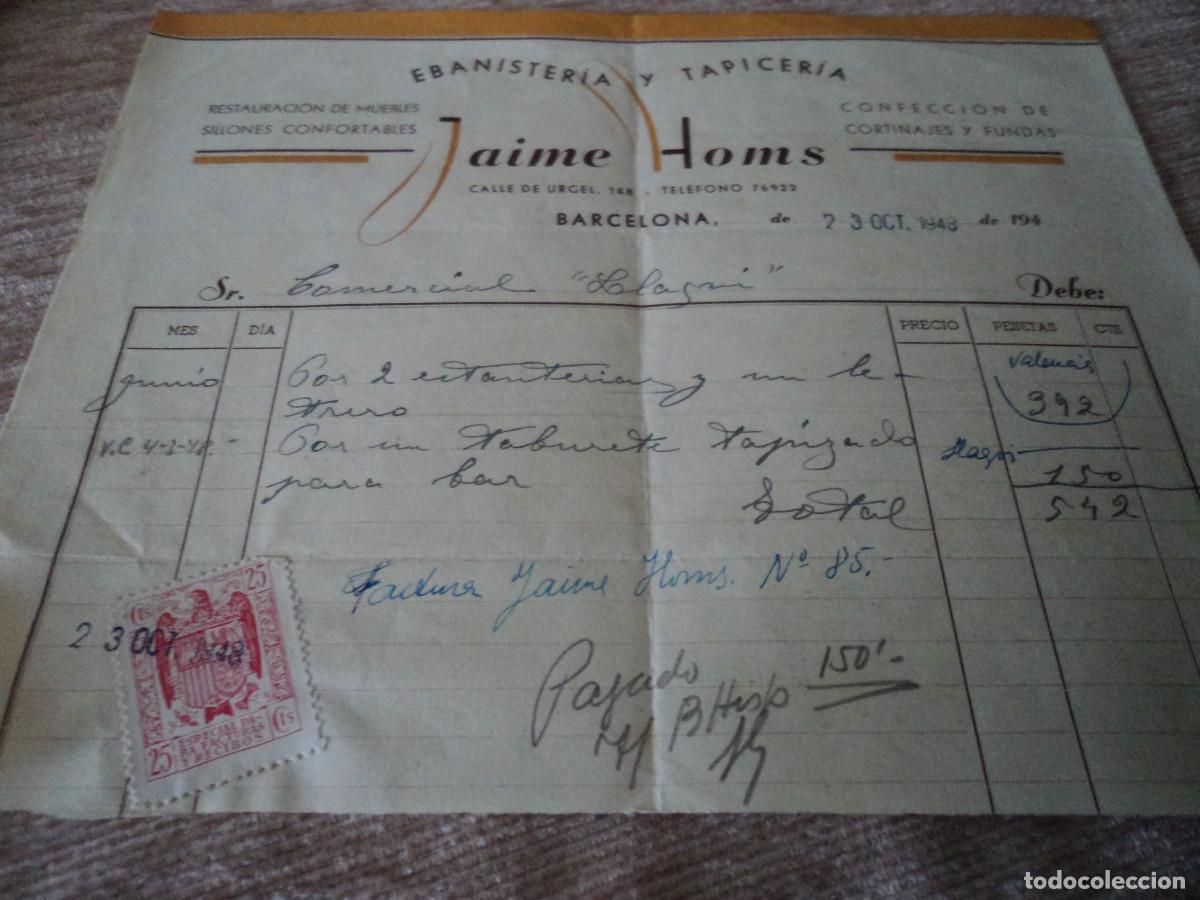 EBANISTERÍA Y TAPICERÍA
RESTAURACIÓN DE MUEBLES
SILLONES CONFORTABLES
CONFECCIÓN DE
CORTINAJES Y FUNDAS
Jaime Homs
CALLE DE URGEL, 148 - TELÉFONO 76922
BARCELONA, de 23 OCT. 1948 de 194
Sr. Comercial Debe:
MES DÍA PRECIO PESETAS CTS.
Valencia
junio Por 2 estanterias y un le-
trero 392
V.C 4-3-48.- Por un taburete tapizado
para bar 150
Total 542
Factura Jaime Homs. Nº 85.-
23 OCT. 1948
25 Cts
ESPECIAL PA-
RA FACTURAS
Y RECIBOS
25 Cts
Pagado 150'-
B Hisp
todocoleccion